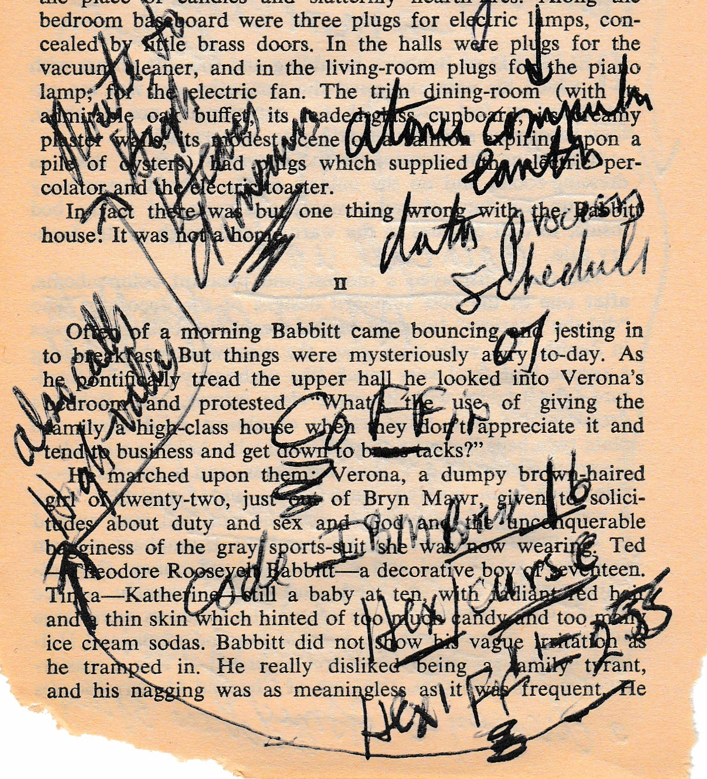 the place of candles and slatternly hearth-fires. Along the
bedroom baseboard were three plugs for electric lamps, con-
cealed by little brass doors. In the halls were plugs for the
vacuum cleaner, and in the living-room plugs for the piano
lamp, for the electric fan. The trim dining-room (with its
admirable oak buffet, its leaded-glass cupboard, its creamy
plaster walls, its modest scene of a salmon expiring upon a
pile of oysters) had plugs which supplied the electric per-
colator and the electric toaster.
In fact there was but one thing wrong with the Babbitt
house: It was not a home.
II
Often of a morning Babbitt came bouncing and jesting in
to breakfast. But things were mysteriously awry to-day. As
he pontifically tread the upper hall he looked into Verona's
bedroom and protested, "What's the use of giving the
family a high-class house when they don't appreciate it and
tend to business and get down to brass tacks?"
He marched upon them: Verona, a dumpy brown-haired
girl of twenty-two, just out of Bryn Mawr, given to solici-
tudes about duty and sex and God and the unconquerable
bagginess of the gray sports-suit she was now wearing. Ted
—Theodore Roosevelt Babbitt—a decorative boy of seventeen.
Tinka—Katherine—still a baby at ten, with radiant red hair
and a thin skin which hinted of too much candy and too many
ice cream sodas. Babbitt did not show his vague irritation as
he tramped in. He really disliked being a family tyrant,
and his nagging was as meaningless as it was frequent. He
to
high
also call
high
atomic computer
earth
data process
schedule
of
CoFFin
code IBM Base 16
Hex/curse
Hex' FF 1-255